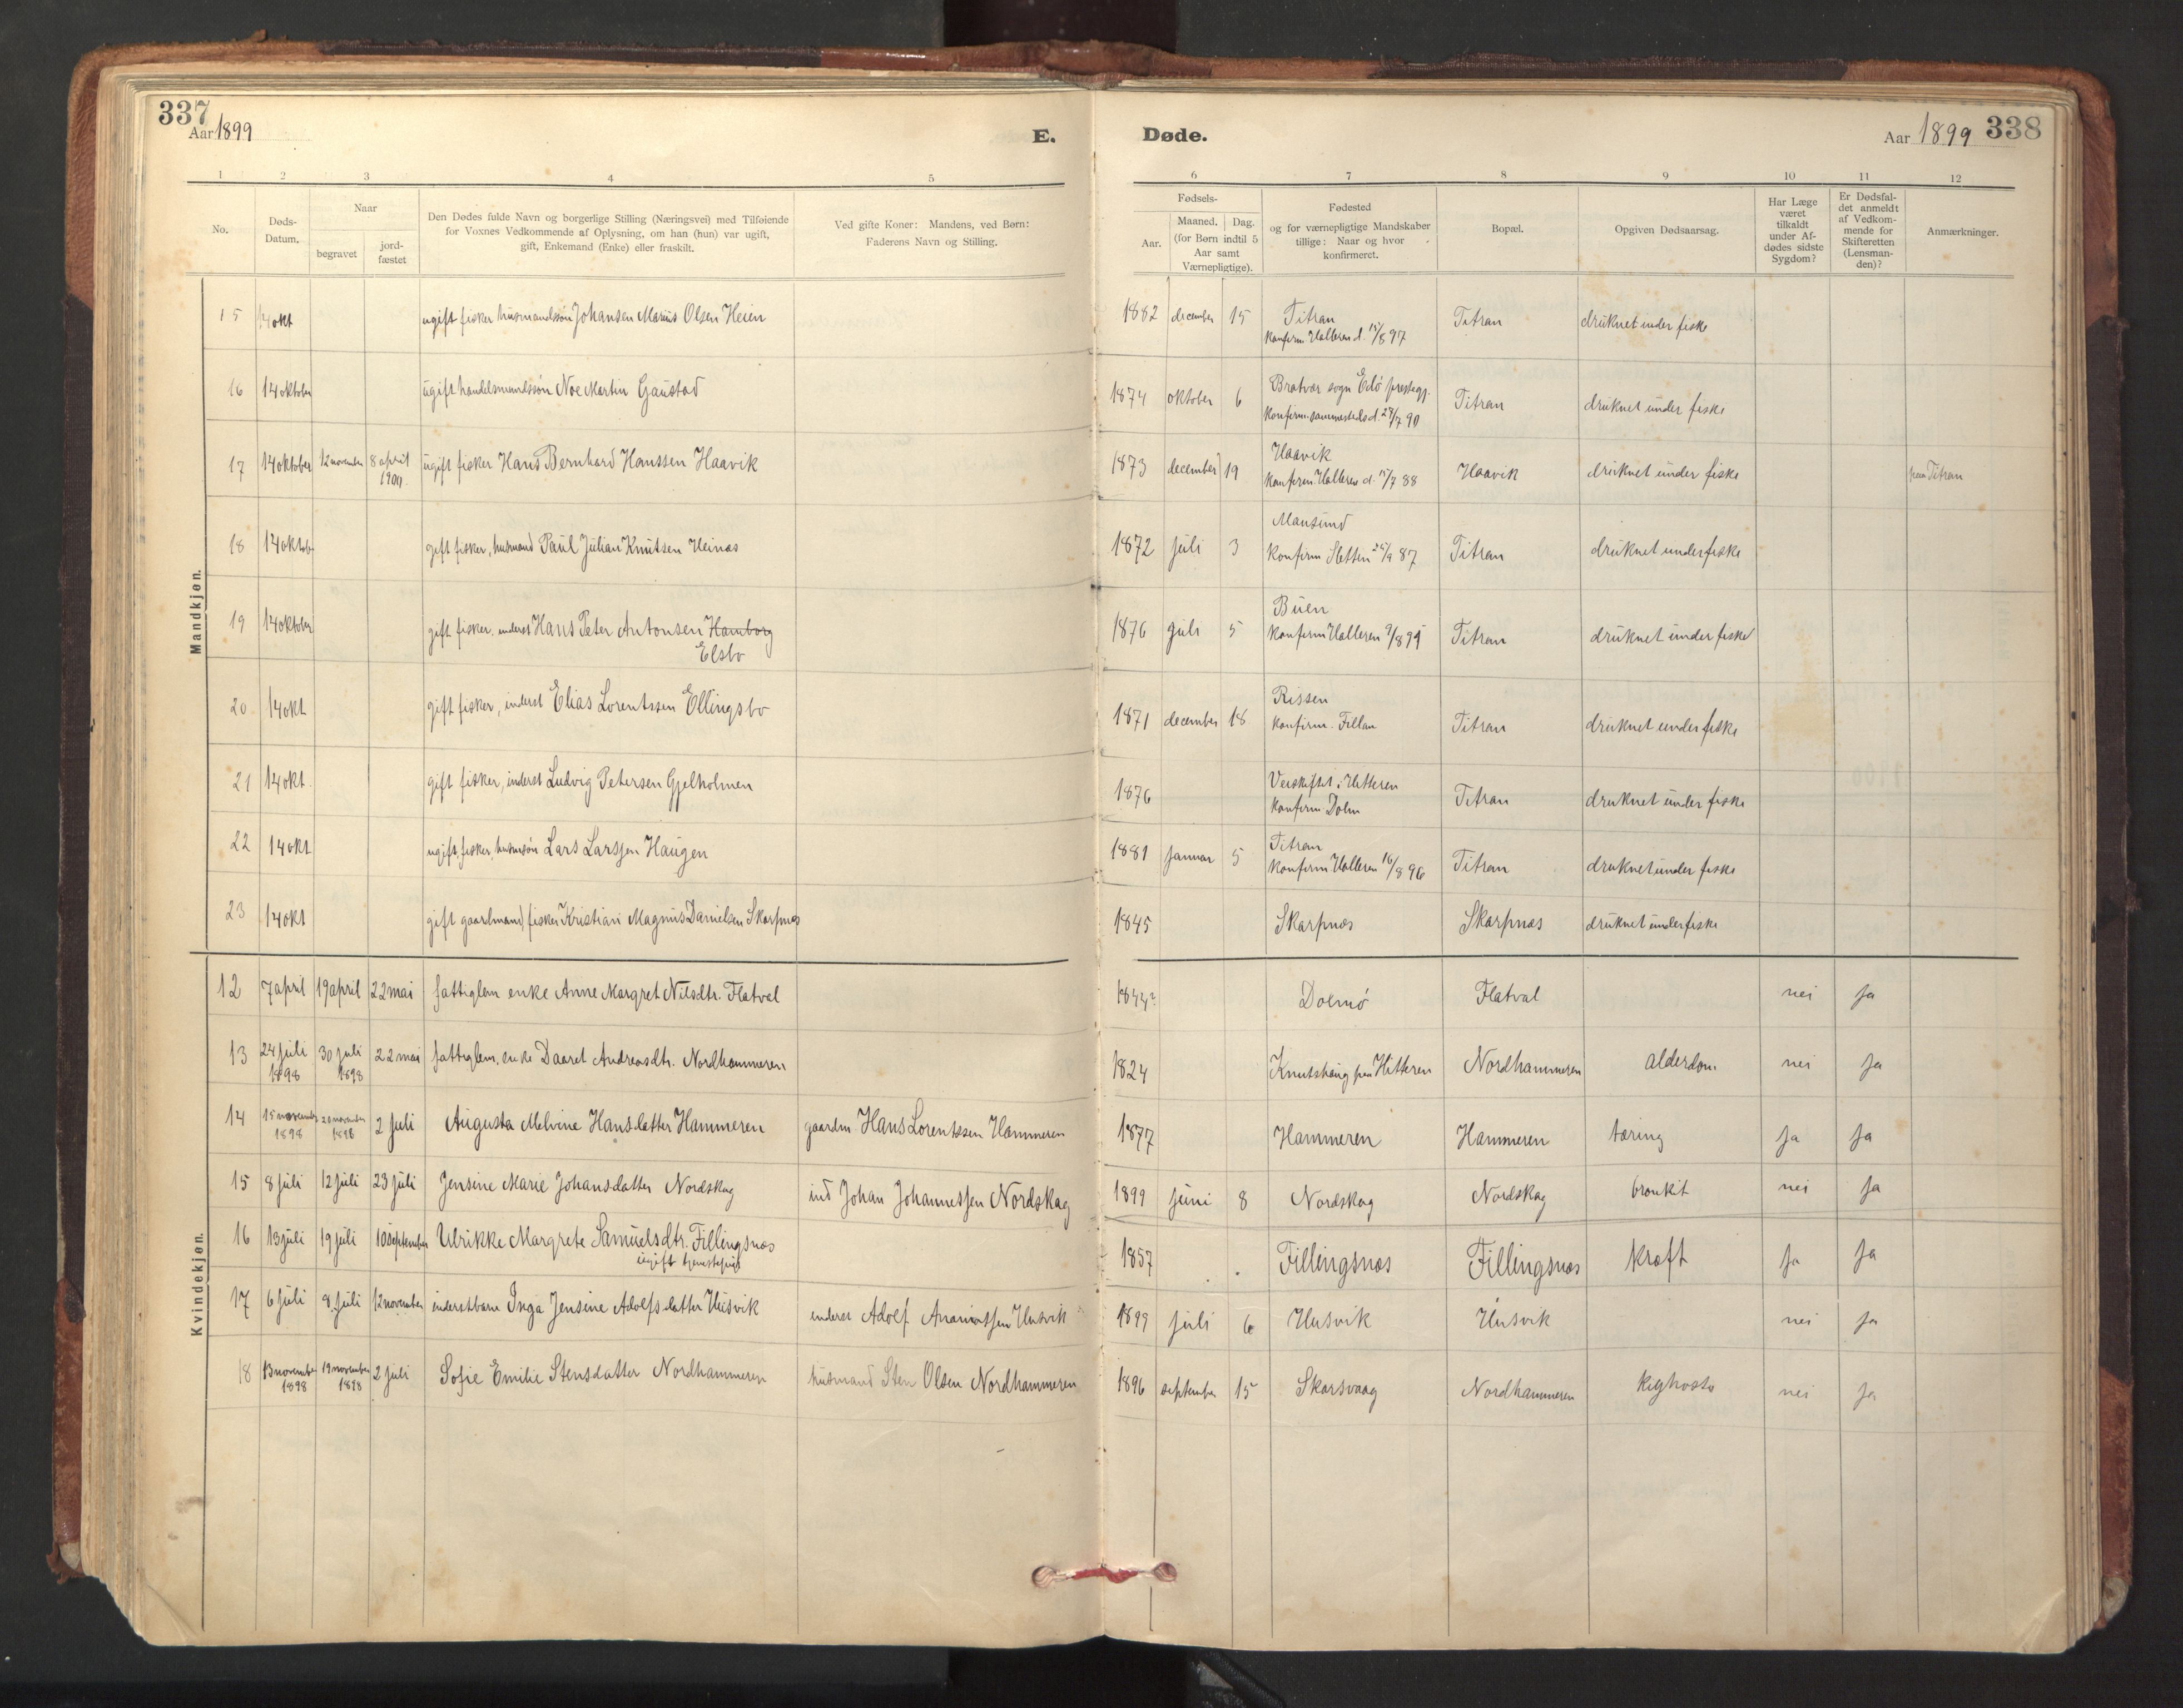 337
Aar 1899
E.
Døde.
Aar 1899
338
1 2 3 4 5
6 7 8 9 10 11 12
No.
Døds-
Datum.
Naar
begravet
jord-
fæstet
Den Dødes fulde Navn og borgerlige Stilling (Næringsvei) med Tilføiende
for Voxnes Vedkommende af Oplysning, om han (hun) var ugift,
gift, Enkemand (Enke) eller fraskilt.
Ved gifte Koner: Mandens, ved Børn:
Faderens Navn og Stilling.
Fødsels-
Aar.
Maaned. Dag.
(for Børn indtil 5
Aar samt
Værnepligtige).
Fødested
og for værnepligtige Mandskaber
tillige: Naar og hvor
konfirmeret.
Bopæl.
Opgiven Dødsaarsag.
Har Læge
været
tilkaldt
under Af-
dødes sidste
Sygdom?
Er Dødsfal-
det anmeldt
af Vedkom-
mende for
Skifteretten
(Lensman-
den)?
Anmærkninger.
Mandkjøn.
15 14 okt ugift fisker husmandssøn Johansen Marius Olsen Heien 1882 december 15 Titran Titran druknet under fiske
konfirm Halleren d. 15/8 97
16 14 oktober ugift handelsmandssøn Noe Martin Gaustad 1874 oktober 6 Bratvær sogn Edø prestegj. Titran druknet under fiske
konfirm. sammesteds d. 27/7 90
17 14 oktober 12 november 8 april ugift fisker Hans Bernhard Hanssen Haavik 1873 december 19 Haavik Haavik druknet under fiske paa Titran
1900. konfirm. Halleren d. 15/7 88
18 14 oktob gift fisker, husmand Paul Julian Knutsen Heinæs 1872 juli 3 Mausund Titran druknet under fiske
konfirm Sletten 25/9 87
19 14 oktober gift fisker, inderst Hans Peter Antonsen Hamborg 1876 juli 5 Buen Titran druknet under fiske
Elsbo konfirm Halleren 9/8 91
20 14 okt gift fisker, inderst Elias Lorentssen Ellingsbo 1871 december 18 Rissen Titran druknet under fiske
konfirm. Fillan
21 14 okt. gift fisker, inderst Ludvig Petersen Gjelholmen 1876 i Hitteren Titran druknet under fiske
konfirm Dolm
22 14 okt ugift, fisker, husmsøn Lars Larssen Haugen 1881 januar 5 Titran Titran druknet under fiske
konfirm Halleren 16/8 96
23 14 okt gift gaardmand, fisker Kristian Magnus Danielsen Skarpnæs 1845 Skarpnæs Skarpnæs druknet under fiske
Kvindekjøn.
12 7 april 19 april 22 mai fattiglem enke Anne Margret Nilsdtr. Flatval 1844? Dolmø Flatval nei ja
13 24 juli 30 juli 22 mai fattiglem. enke Daaret Andreasdtr. Nordhammeren 1824 Knutshaug paa Hitteren Nordhammeren alderdom nei ja
1898 1898
14 15 november 20 november 2 juli Augusta Melvine Hansdatter Hammeren gaardm Hans Lorentssen Hammeren 1877 Hammeren Hammeren tæring ja ja
1898 1898
15 8 juli 12 juli 23 juli Jensine Marie Johansdatter Nordskag ind Johan Johannessen Nordskag 1899 juni 8 Nordskag Nordskag bronkit nei ja
16 13 juli 19 juli 10 september Ulrikke Margrete Samuelsdtr. Fillingsnæs 1857 Fillingsnæs Fillingsnæs kræft ja ja
ugift tjenestepige
17 6 juli 9 juli 12 november inderstbarn Inga Jensine Adolfsdatter Husvik inderst Adolf Ananiassen Husvik 1899 juli 6 Husvik Husvik nei ja
18 13 november 19 november 2 juli Sofie Emilie Stensdatter Nordhammeren husmand Sten Olsen Nordhammeren 1896 september 15 Skarsvaag Nordhammeren kighoste nei ja
1898 1898